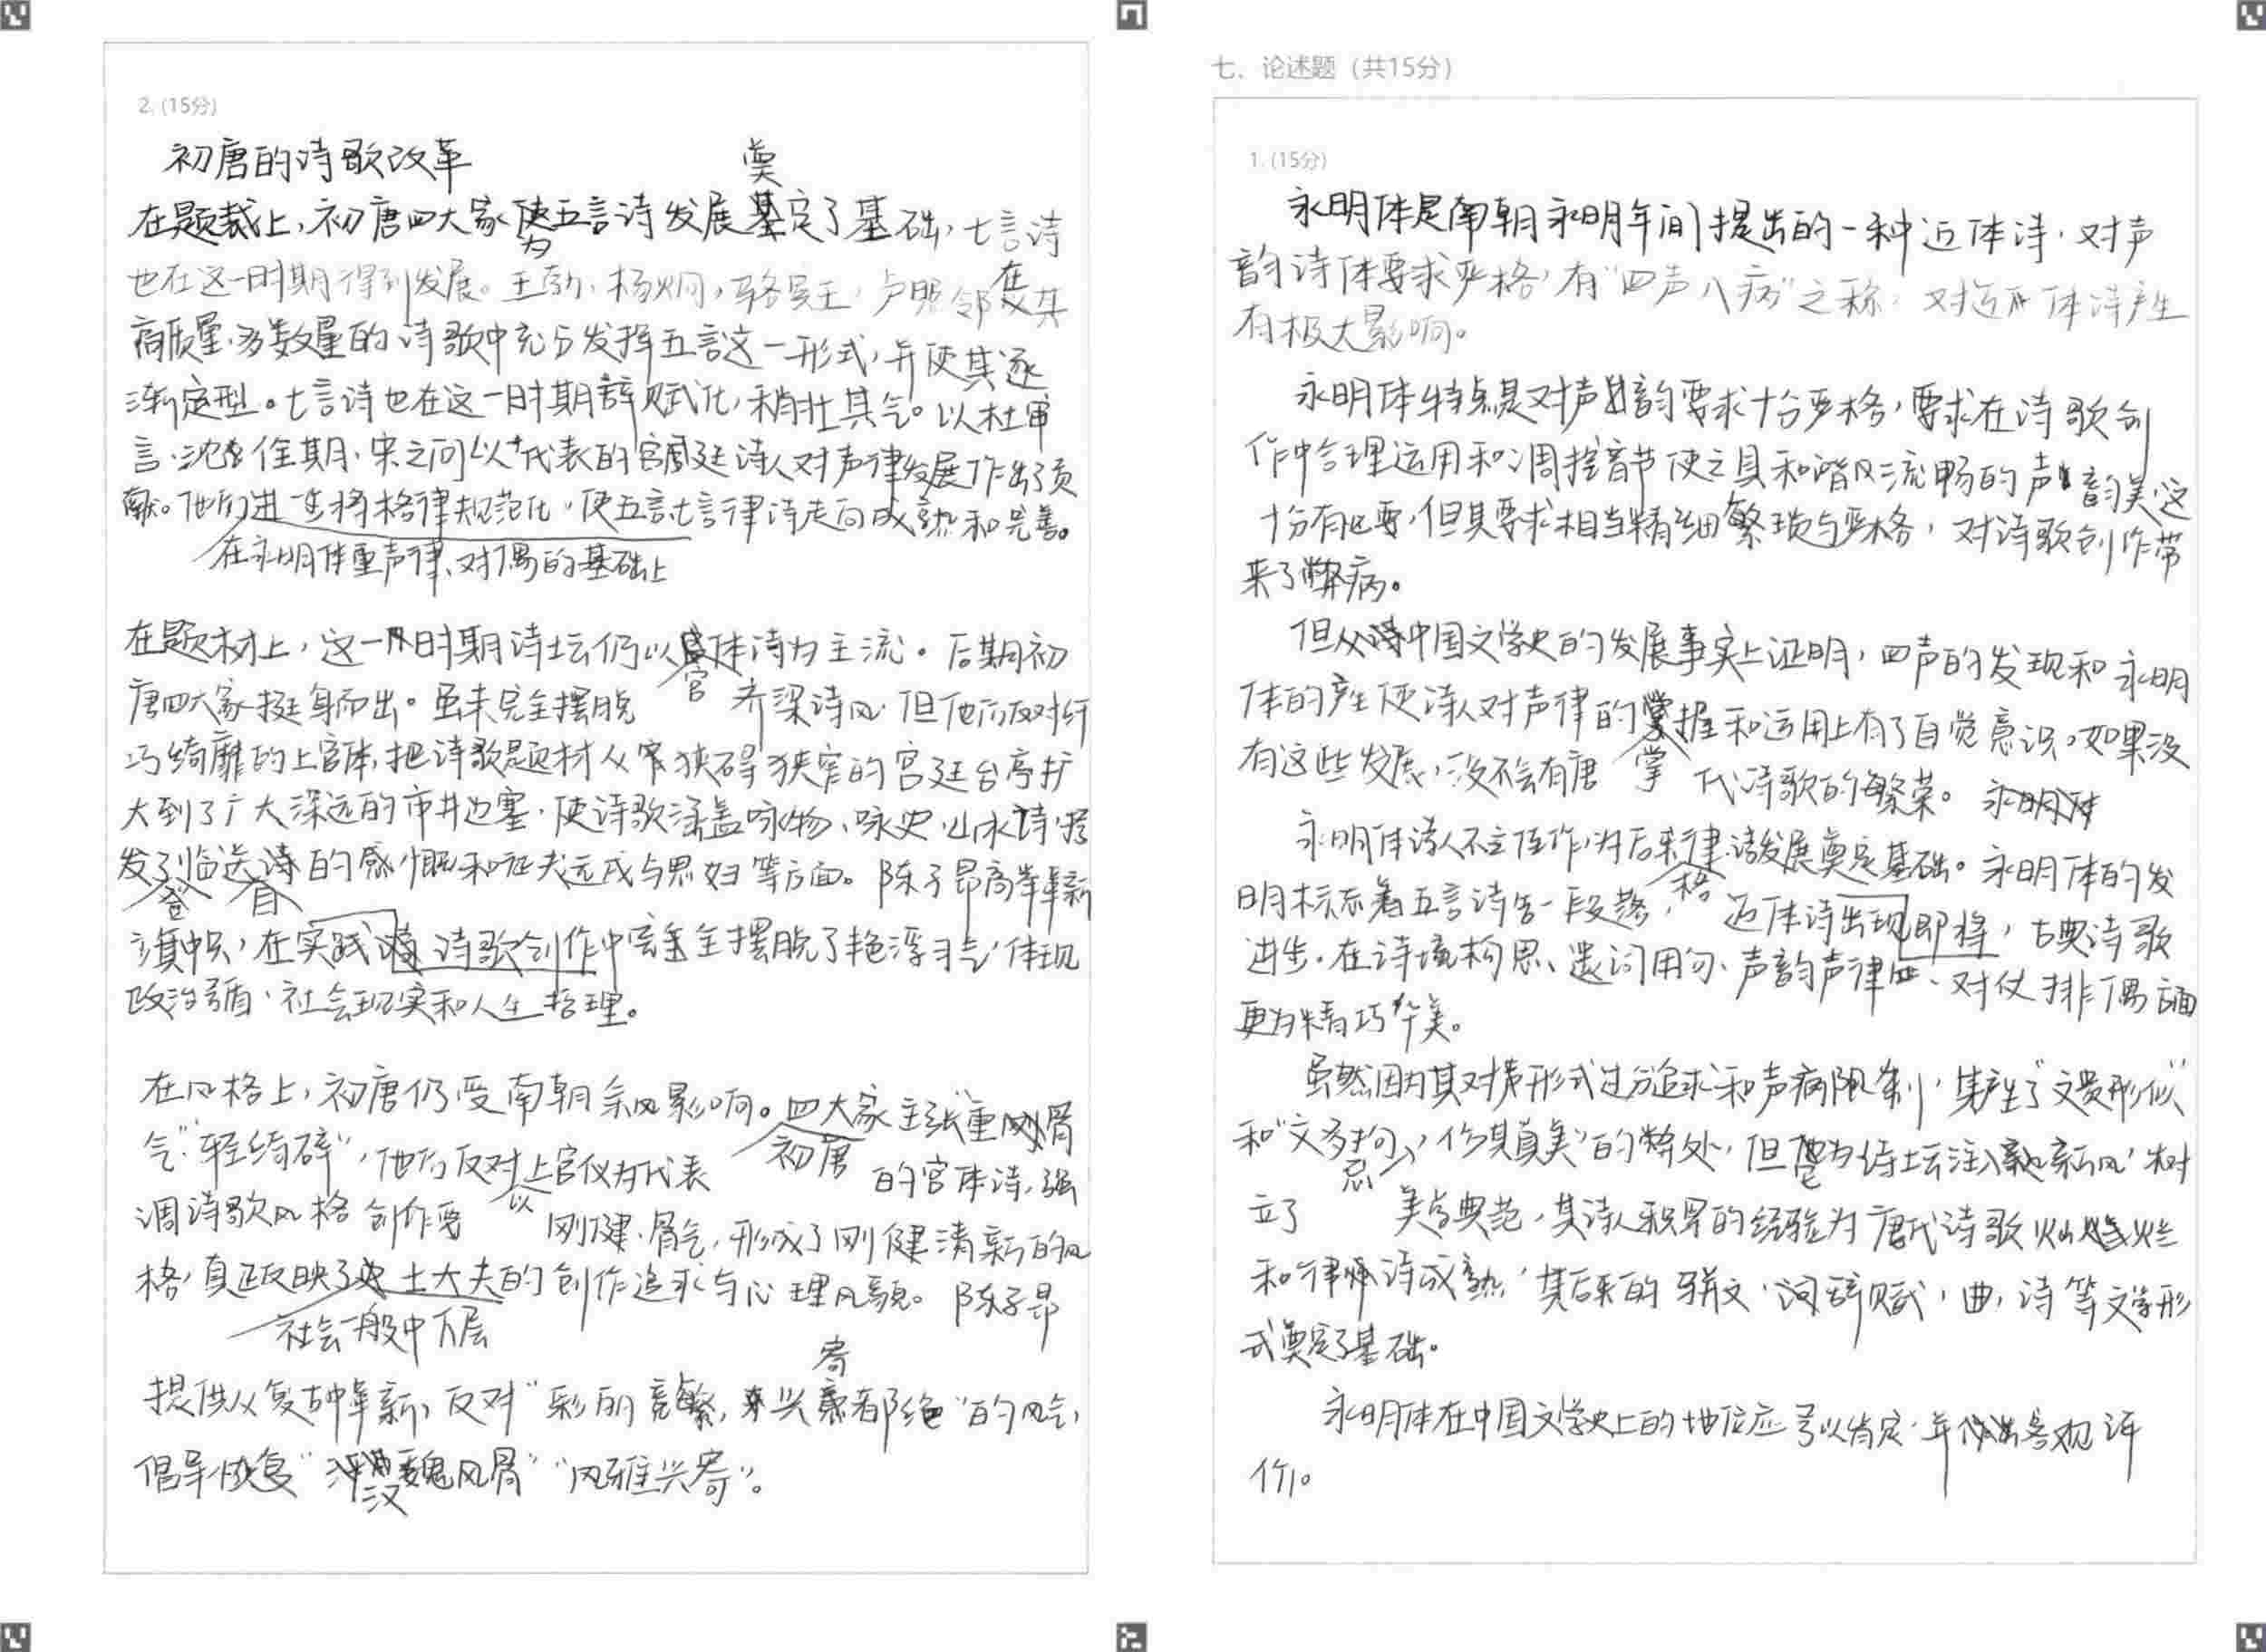 2. (15分)
初唐的诗歌改革
在题裁上，初唐四大家为五言诗发展奠定了基础，七言诗
也在这一时期得到发展。王勃、杨炯，骆宾王，卢照邻在其
高质量、多数量的诗歌中充分发挥五言这一形式，并使其逐
渐定型。七言诗也在这一时期辞赋化，稍壮其气。以杜审
言、沈佺期、宋之问为代表的宫廷诗人对声律发展作出了贡
献。他们在永明体重声律、对偶的基础上进一步将格律规范化，使五言七言律诗走向成熟和完善。
在题材上，这一时期诗坛仍以宫体诗为主流。后期初
唐四大家挺身而出。虽未完全摆脱齐梁诗风，但他们反对纤
巧绮靡的上官体，把诗歌题材从狭窄的宫廷台亭扩
大到了广大深远的市井边塞，使诗歌涵盖咏物、咏史、山水诗，抒
发了登临送目的感慨和征夫远戍与思妇等方面。陈子昂高举革新
旗帜，在诗歌创作实践中完全摆脱了艳浮习气，体现
政治矛盾、社会现实和人生哲理。
在风格上，初唐仍受南朝余风影响。初唐四大家主张"重骨
气""轻绮碎"，他们反对以上官仪为代表的宫体诗，强
调诗歌风格创作要刚健、骨气，形成了刚健清新的风
格，真正反映了社会一般中下层士大夫的创作追求与心理风貌。陈子昂
提供从复古中革新，反对"彩丽竞繁，兴寄都绝"的风气，
倡导恢复"汉魏风骨""风雅兴寄"。
七、论述题（共15分）
1. (15分)
永明体是南朝永明年间提出的一种近体诗，对声
韵诗体要求严格，有"四声八病"之称，对近体诗产生
有极大影响。
永明体特点是对声韵要求十分严格，要求在诗歌创
作中合理运用和调控音节使之具和谐流畅的声韵美，这
十分有必要，但其要求相当精细繁琐与严格，对诗歌创作带
来了弊病。
但从中国文学史的发展事实上证明，四声的发现和永明
体的产生使诗人对声律的掌握和运用上有了自觉意识，如果没
有这些发展，没不会有唐代诗歌的繁荣。
永明体诗人不立佳作，为后来格律诗发展奠定基础。永明体的发
明标志着五言诗告一段落，近体诗即将出现，古典诗歌
进步，在诗境构思、遣词用句、声韵声律、对仗排偶方面
更为精巧华美。
虽然因为其对形式过分追求和声病限制，其产生了"文贵形似"
和"文多拘忌，伤其真美"的弊处，但它为诗坛注入新风，树
立了美与典范，其诗人积累的经验为唐代诗歌灿烂
和律诗成熟，其后来的骈文、词辞赋，曲，诗等文学形
式奠定了基础。
永明体在中国文学史上的地位应予以肯定，并做出客观评
价。